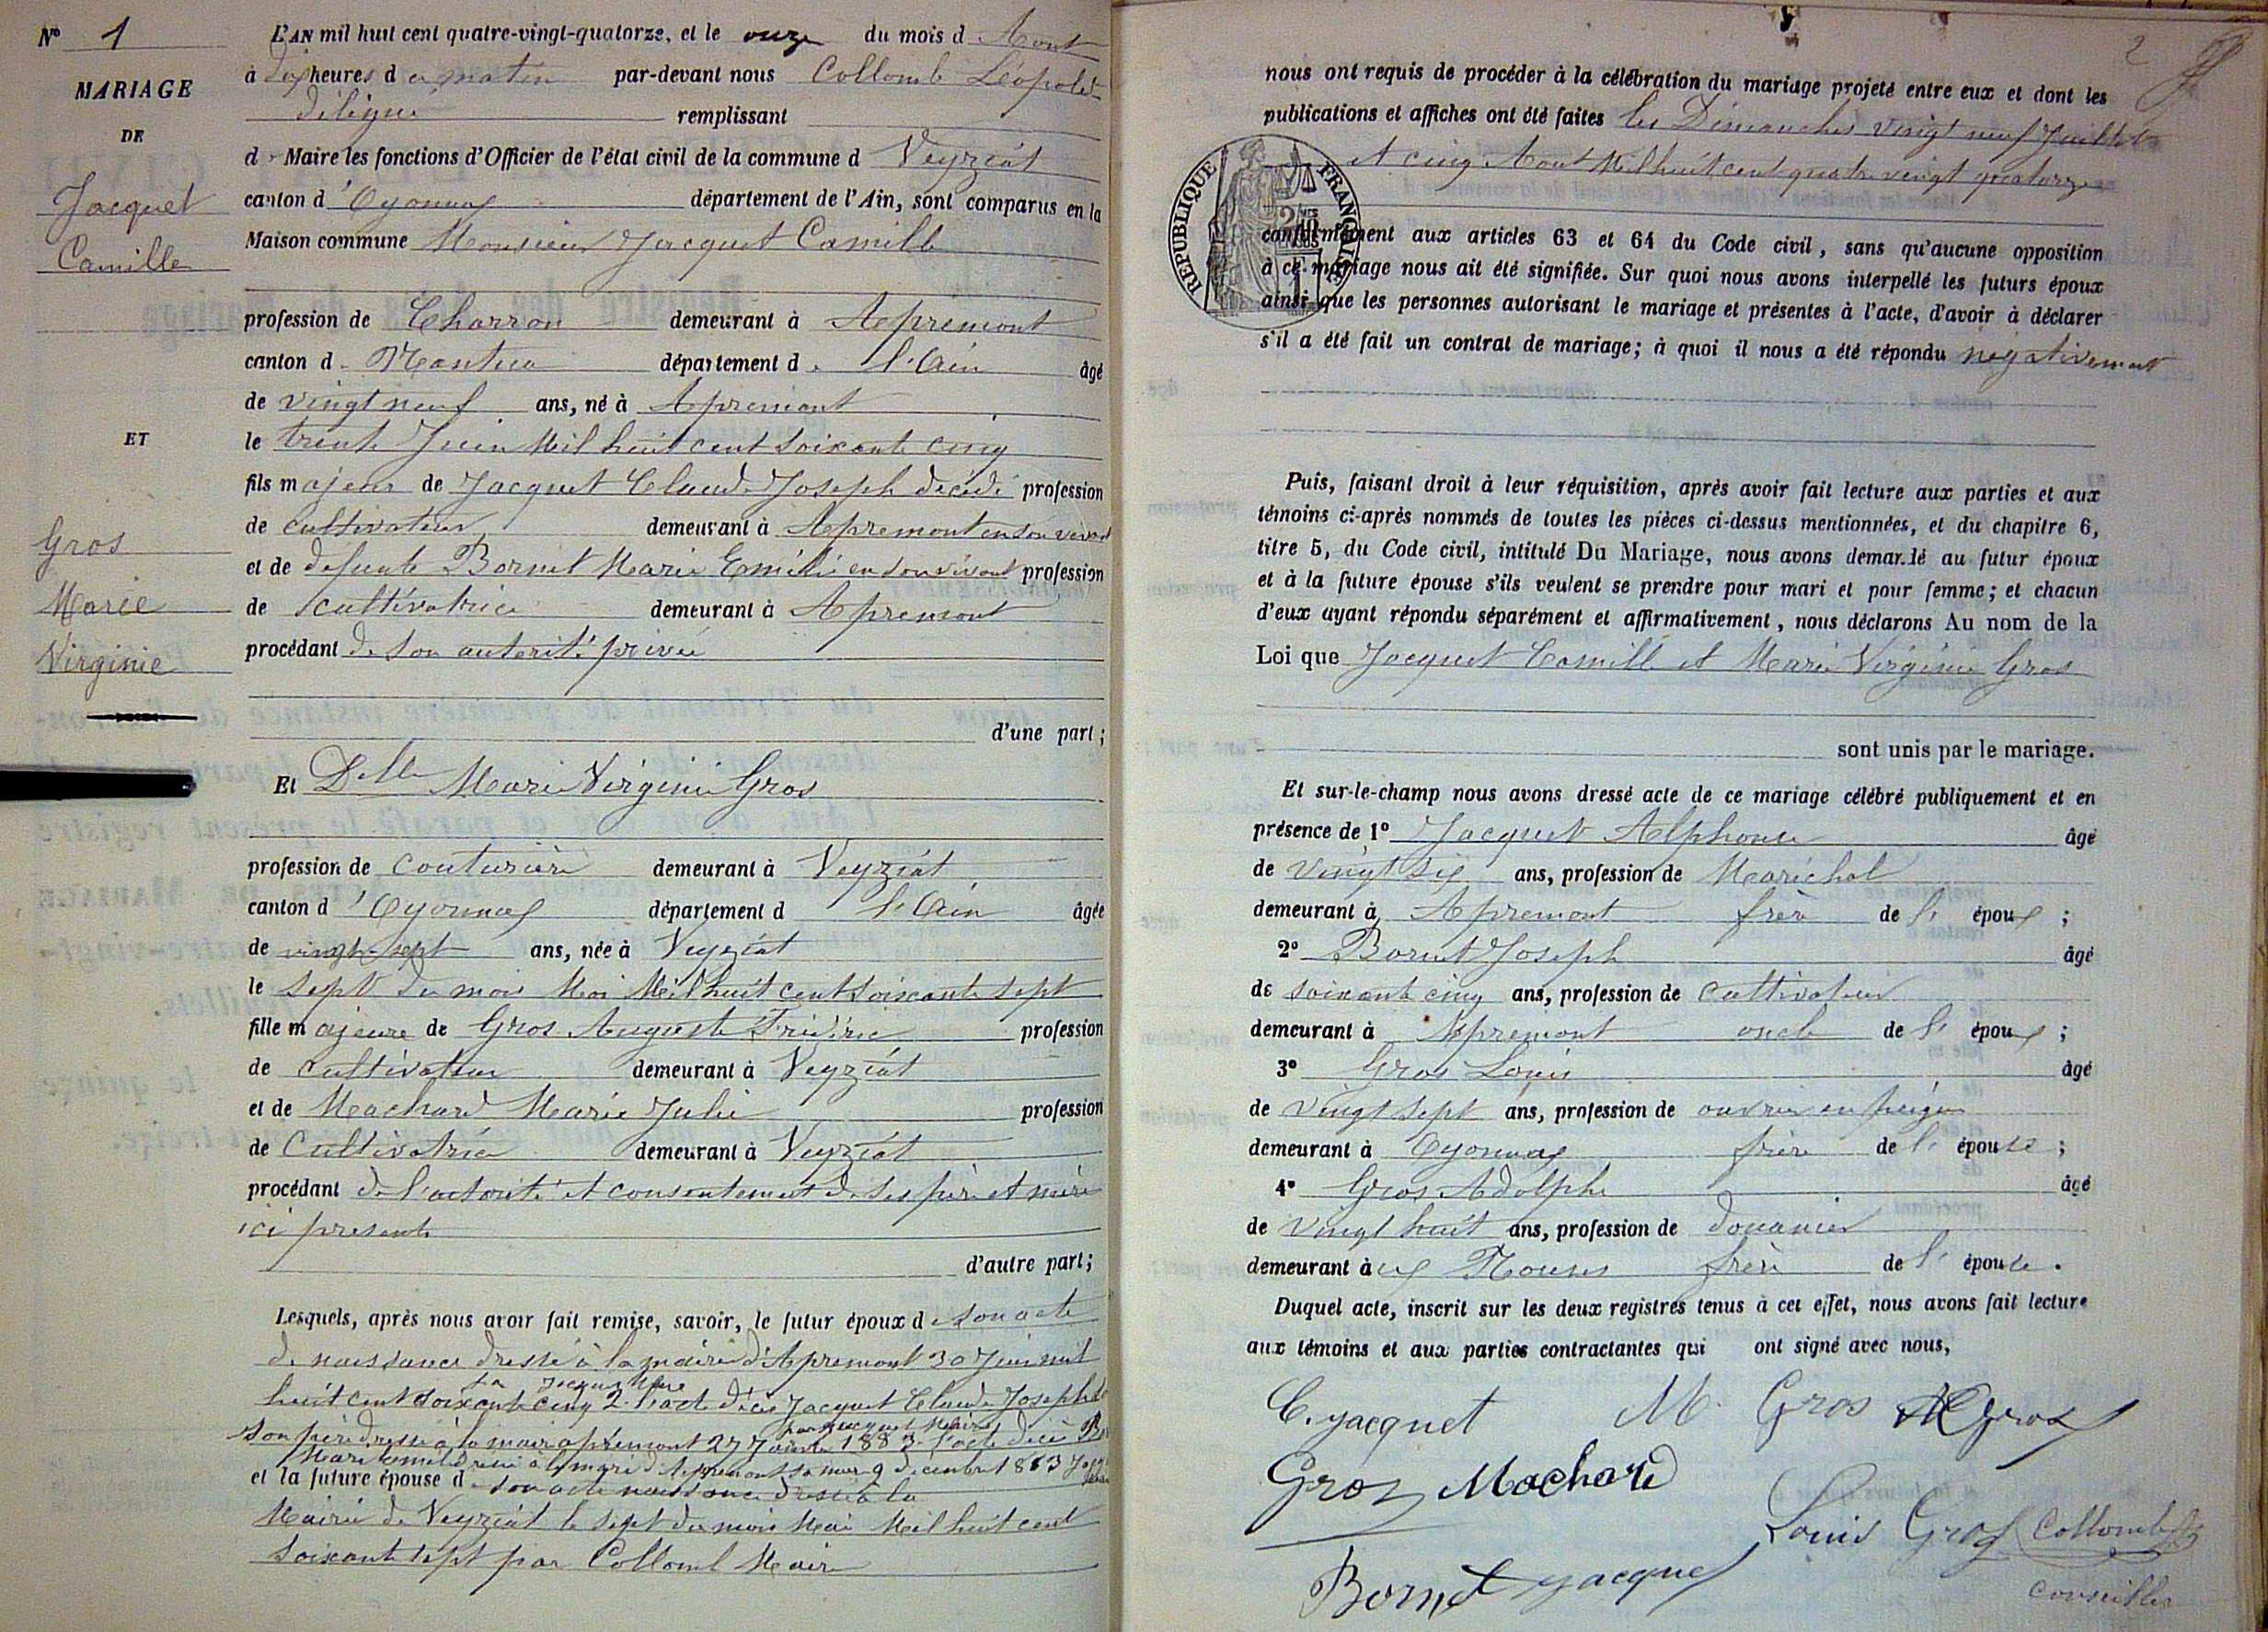 N° 1
MARIAGE
DE
Jacquet
Camille
ET
Gros
Marie
Virginie
L'AN mil huit cent quatre-vingt-quatorze, et le onze du mois d Aout
à dix heures du matin par-devant nous Collomb Léopold
délégué remplissant
d Maire les fonctions d'Officier de l'état civil de la commune d Veyziat
canton d'Oyonnax département de l'Ain, sont comparus en la
Maison commune Monsieur Jacquet Camille
profession de Charron demeurant à Apremont
canton d Nantua département d l'Ain âgé
de vingt neuf ans, né à Apremont
le trente Juin Mil huit cent soixante cinq
fils majeur de Jacquet Claude Joseph décédé profession
de cultivateur demeurant à Apremont en son vivant
et de defunte Bornet Marie Emélie en son vivant profession
de cultivatrice demeurant à Apremont
procédant de son autorité privée
d'une part;
Et Delle Marie Virginie Gros
profession de couturière demeurant à Veyziat
canton d'Oyonnax département d l'Ain âgée
de vingt sept ans, née à Veyziat
le sept du mois Mai Mil huit cent soixante sept
fille majeure de Gros Auguste Fréderic profession
de cultivateur demeurant à Veyziat
et de Machard Marie Julie profession
de Cultivatrice demeurant à Veyziat
procédant de l'autorité et consentement de ses père et mère
ici present
d'autre part;
Lesquels, après nous avoir fait remise, savoir, le futur époux d son acte
de naissance dressé à la mairie d'Apremont 30 Juin mil
huit cent soixante cinq 2. l'acte décès Jacquet Claude Joseph
son père dressé à la mairie apremont 27 1883 l'acte décès
Marie Emélie dressé à la mairie d'Apremont sa mère 9 décembre
et la future épouse d son acte naissance dressé à la
Mairie de Veyziat le sept du mois Mai Mil huit cent
soixante sept par Collomb Maire
2
nous ont requis de procéder à la célébration du mariage projeté entre eux et dont les
publications et affiches ont été faites les Dimanches vingt neuf Juillet
et cinq Aout Mil huit cent quatre vingt quatorze
RÉPUBLIQUE FRANÇAISE
conformément aux articles 63 et 64 du Code civil, sans qu'aucune opposition
à ce mariage nous ait été signifiée. Sur quoi nous avons interpellé les futurs époux
ainsi que les personnes autorisant le mariage et présentes à l'acte, d'avoir à déclarer
s'il a été fait un contrat de mariage; à quoi il nous a été répondu négativement
Puis, faisant droit à leur réquisition, après avoir fait lecture aux parties et aux
témoins ci-après nommés de toutes les pièces ci-dessus mentionnées, et du chapitre 6,
titre 5, du Code civil, intitulé Du Mariage, nous avons demandé au futur époux
et à la future épouse s'ils veulent se prendre pour mari et pour femme; et chacun
d'eux ayant répondu séparément et affirmativement, nous déclarons Au nom de la
Loi que Jacquet Camille et Marie Virginie Gros
sont unis par le mariage.
Et sur-le-champ nous avons dressé acte de ce mariage célébré publiquement et en
présence de 1° Jacquet Alphonse âgé
de vingt six ans, profession de Maréchal
demeurant à Apremont frère de l' époux ;
2° Bornet Joseph âgé
de soixante cinq ans, profession de cultivateur
demeurant à Apremont oncle de l' époux ;
3° Gros Louis âgé
de vingt sept ans, profession de ouvrier en peigne
demeurant à Oyonnax frère de l' épouse ;
4° Gros Adolphe âgé
de vingt huit ans, profession de douanier
demeurant à ux Rousses frère de l' épouse.
Duquel acte, inscrit sur les deux registres tenus à cet effet, nous avons fait lecture
aux témoins et aux parties contractantes qui ont signé avec nous,
C. Jacquet M. Gros A Gros
Gros Machard
Louis Gros Collomb
Bornet Jacquet
conseiller